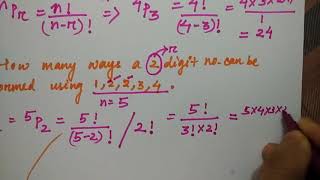 ⁿPᵣ = n!/(n-r)! => ⁴P₃ = 4!/(4-3)! = 4×3×2×1/1
= 24
How many ways a 2 digit no. can be → r
formed using 1, 2, 2, 3, 4.
n = 5
= ⁵P₂ = 5!/(5-2)! / 2! = 5!/3!×2! = 5×4×3×2